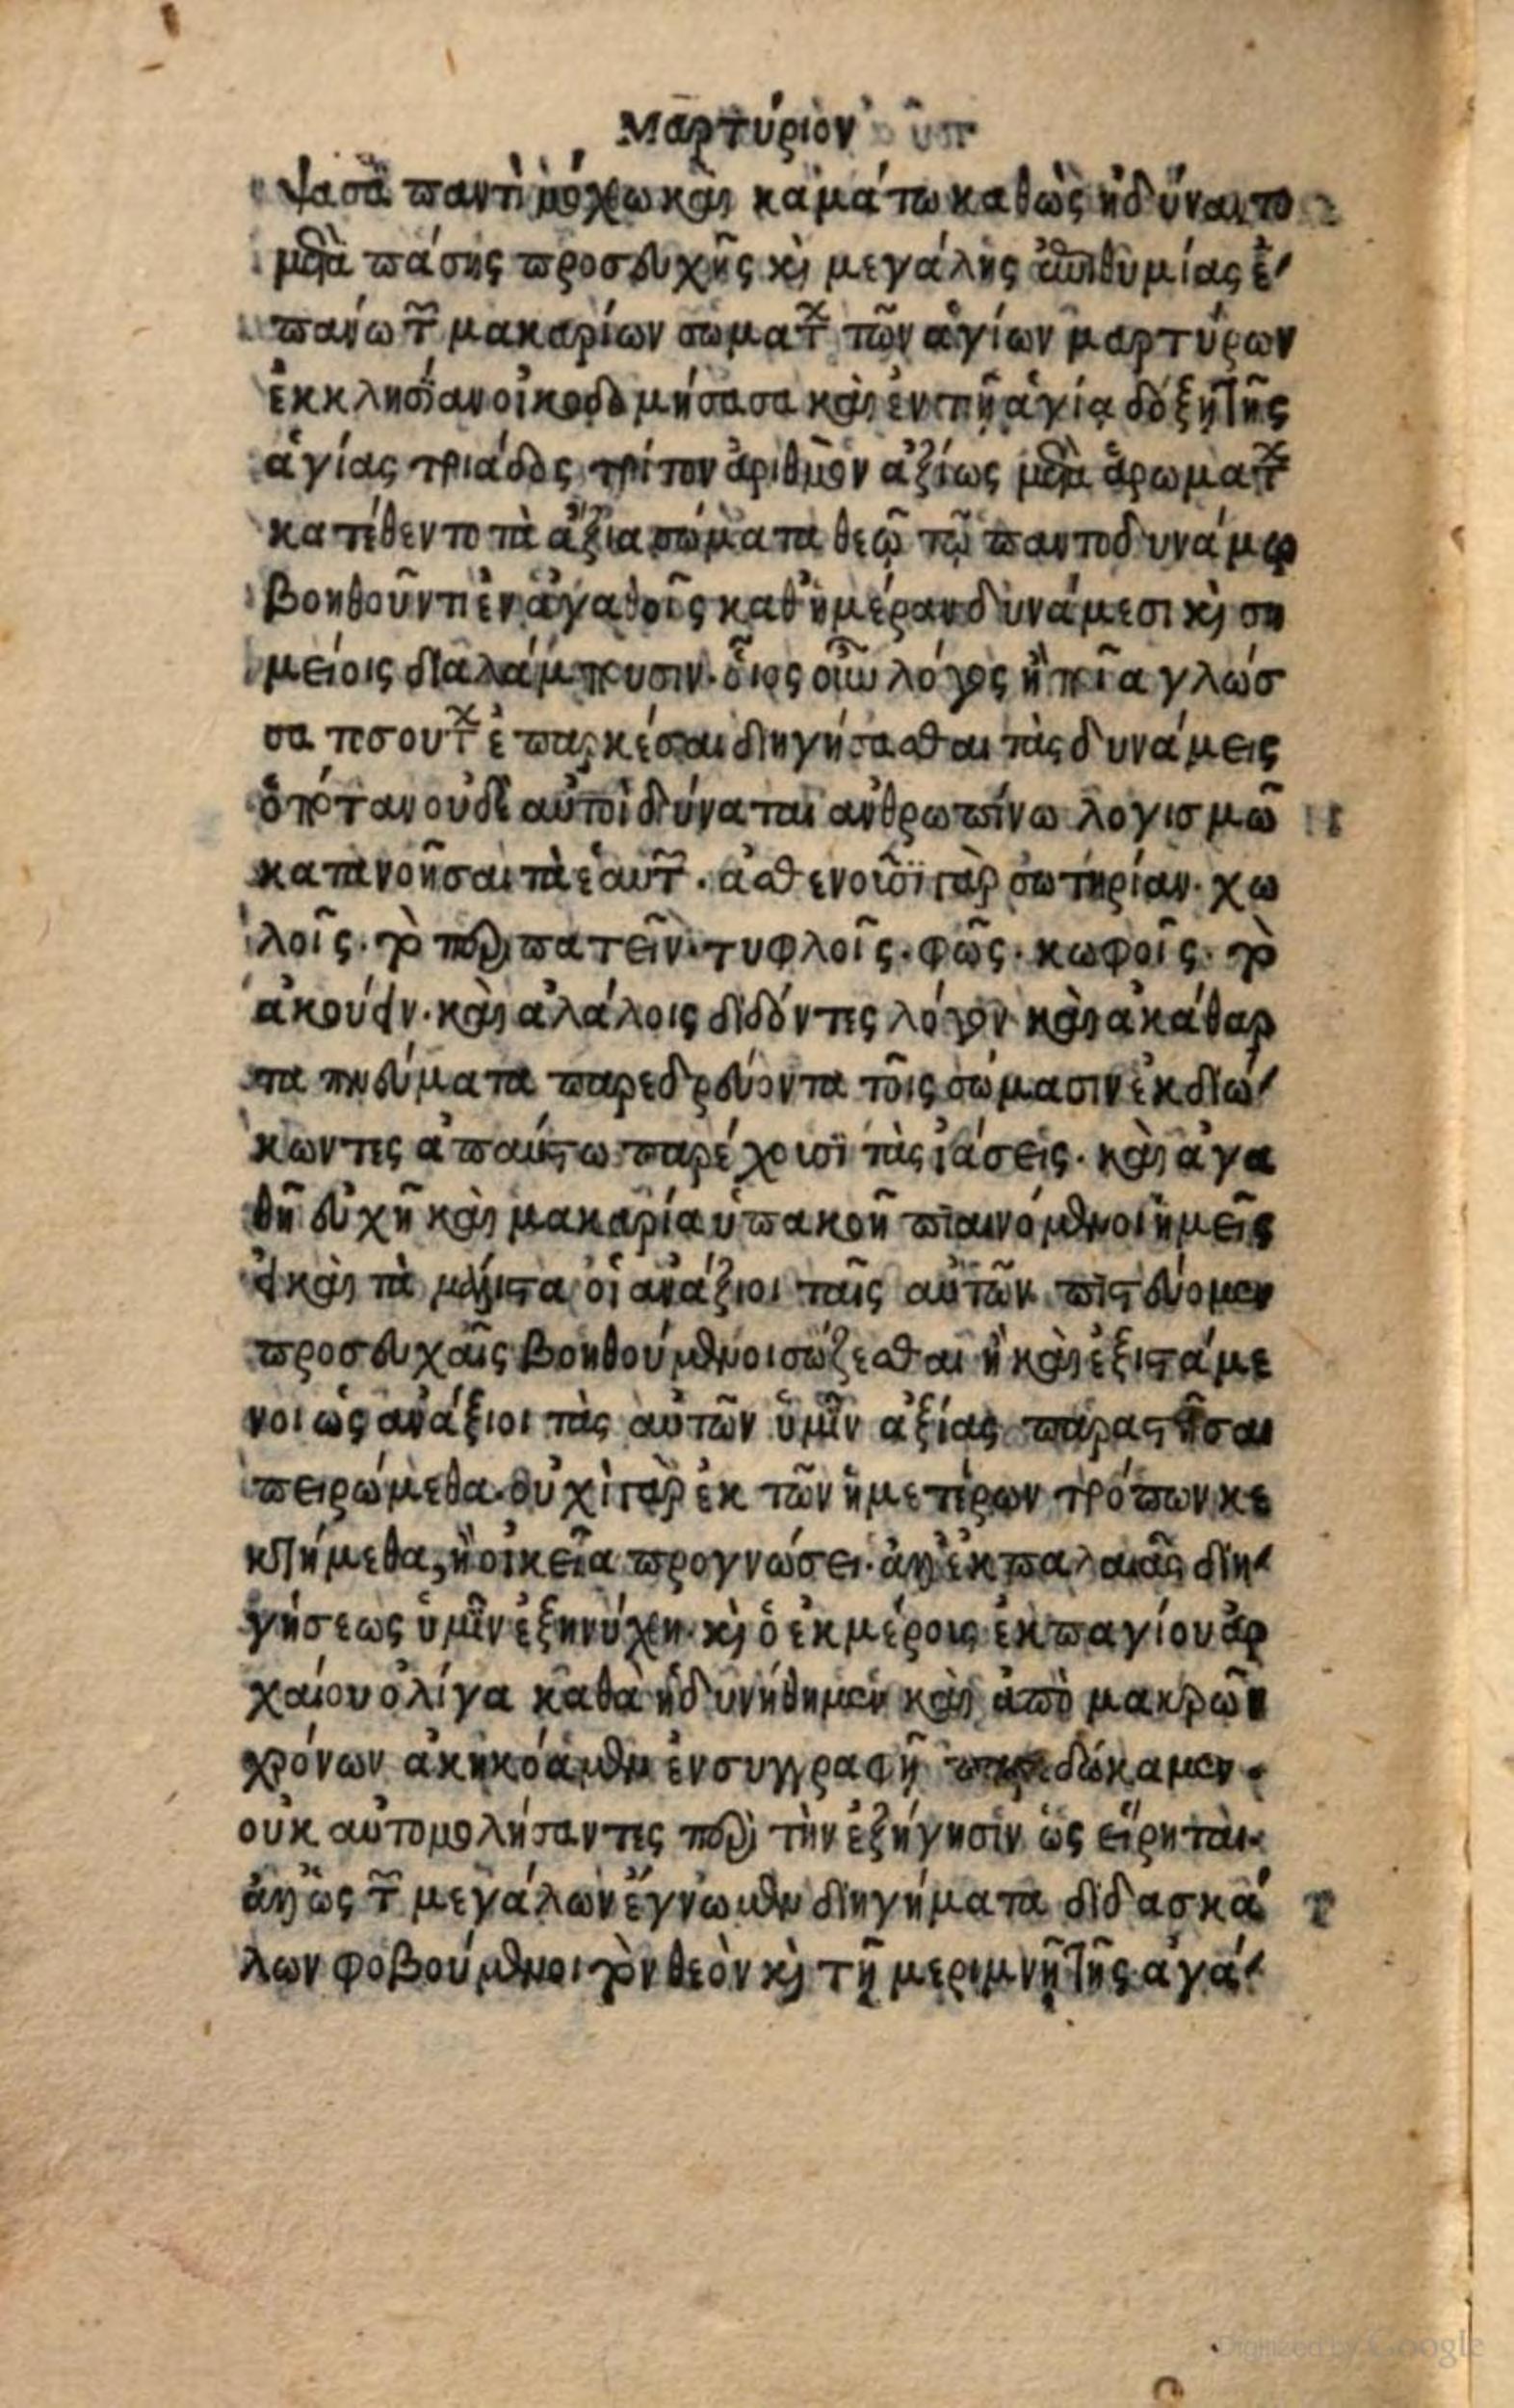 Μαρτύριον
ψασα παντὶ μόχω καὶ καμάτω καθὼς ἠδύνατο
μετὰ πάσης προσευχῆς κὶ μεγάλης ἐπιθυμίας ἐ
πανω τῶν μακαρίων σωματων τῶν ἁγίων μαρτύρων
ἐκκλησίαν οἰκοδομήσασα καὶ ἐν τῆ ἁγία δόξη τῆς
ἁγίας τριάδος τρίτον ἀριθμὸν ἀξίως μετὰ ἀρωματων
κατέθεντο τὰ ἄξια σώματα θεῷ τῷ παντοδυνάμῳ
βοηθοῦντι ἐν ἀγαθοῖς καθ' ἡμέραν δυνάμεσι κὶ ση
μείοις διαλάμπουσιν. ὅιος οὖν λόγος ἢ ποῖα γλώσ
σα τοσουτων ἐπαρκέσαι διηγήσασθαι τὰς δυνάμεις
ὁπόταν οὐδὲ αὐτοὶ δύναται ἀνθρωπίνω λογισμῶ
κατανοῆσαι τὰ ἑαυτῶν. ἀσθενοῦσϊ γὰρ σωτηρίαν. χω
λοῖς. τὸ περιπατεῖν. τυφλοῖς. φῶς. κωφοῖς. τὸ
ἀκούειν. καὶ ἀλάλοις διδόντες λόγον καὶ ἀκάθαρ
τα πνεύματα παρεδρεύοντα τοῖς σώμασιν ἐκδιώ
κωντες ἀπαύστω παρέχουσϊ τὰς ἰάσεις. καὶ ἀγα
θῆ εὐχῆ καὶ μακαρία ὑπακοῆ πιαινόμενοι ἡμεῖς
εἰ καὶ τὰ μάλιστα οἱ ἀνάξιοι ταῖς αὐτῶν πιστεύομεν
προσευχαῖς βοηθούμενοι σώζεσθαι ἢ καὶ ἐξιστάμε
νοι ὡς ἀνάξιοι τὰς αὐτῶν ὑμῖν ἀξίας παραστῆσαι
πειρώμεθα. οὐχὶ γὰρ ἐκ τῶν ἡμετέρων τρόπων κε
κτήμεθα, ἢ οἰκεῖα προγνώσει. ἀλλ' ἐκ παλαιᾶς διη
γήσεως ὑμῖν ἐξηνύχη. κὶ ὁ ἐκ μέρους ἐκ παγίου ἀρ
χαίου ὀλίγα καθὰ ἠδυνήθημεν καὶ ἀπὸ μακρῶν
χρόνων ἀκηκόαμεν ἐν συγγραφῆ παρεδώκαμεν.
οὐκ αὐτομολήσαντες περὶ τὴν ἐξήγησϊν ὡς εἴρηται.
ἀλλ' ὡς τῶν μεγάλων ἔγνωμεν διηγήματα διδασκά
λων φοβούμενοι τὸν θεὸν κὶ τῆ μεριμνῆ τῆς ἀγά
Digitized by Google